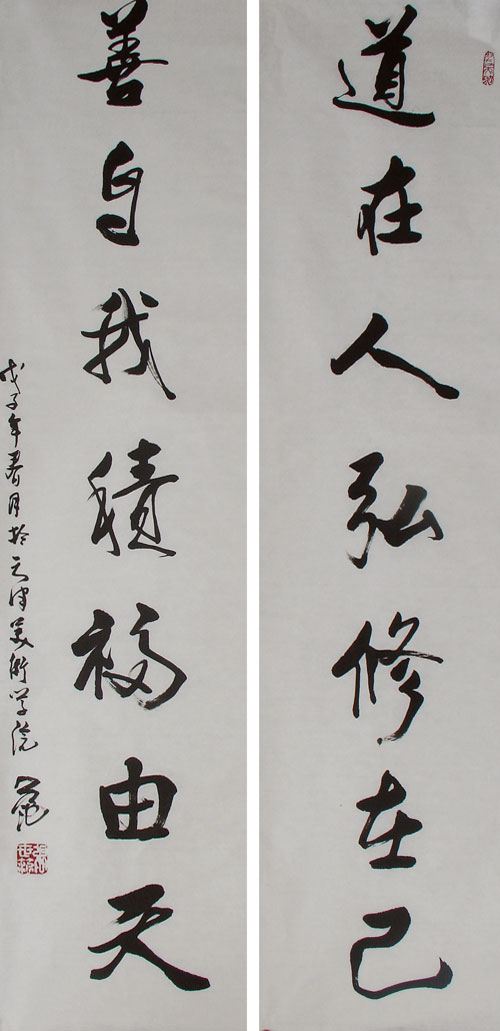 道在人弘修在己
善自我積福由天
戊子年春月於天津美術学院